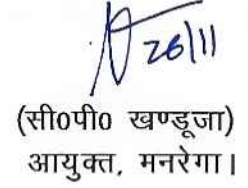 26/11
(सी0पी0 खण्डूजा)
आयुक्त, मनरेगा।